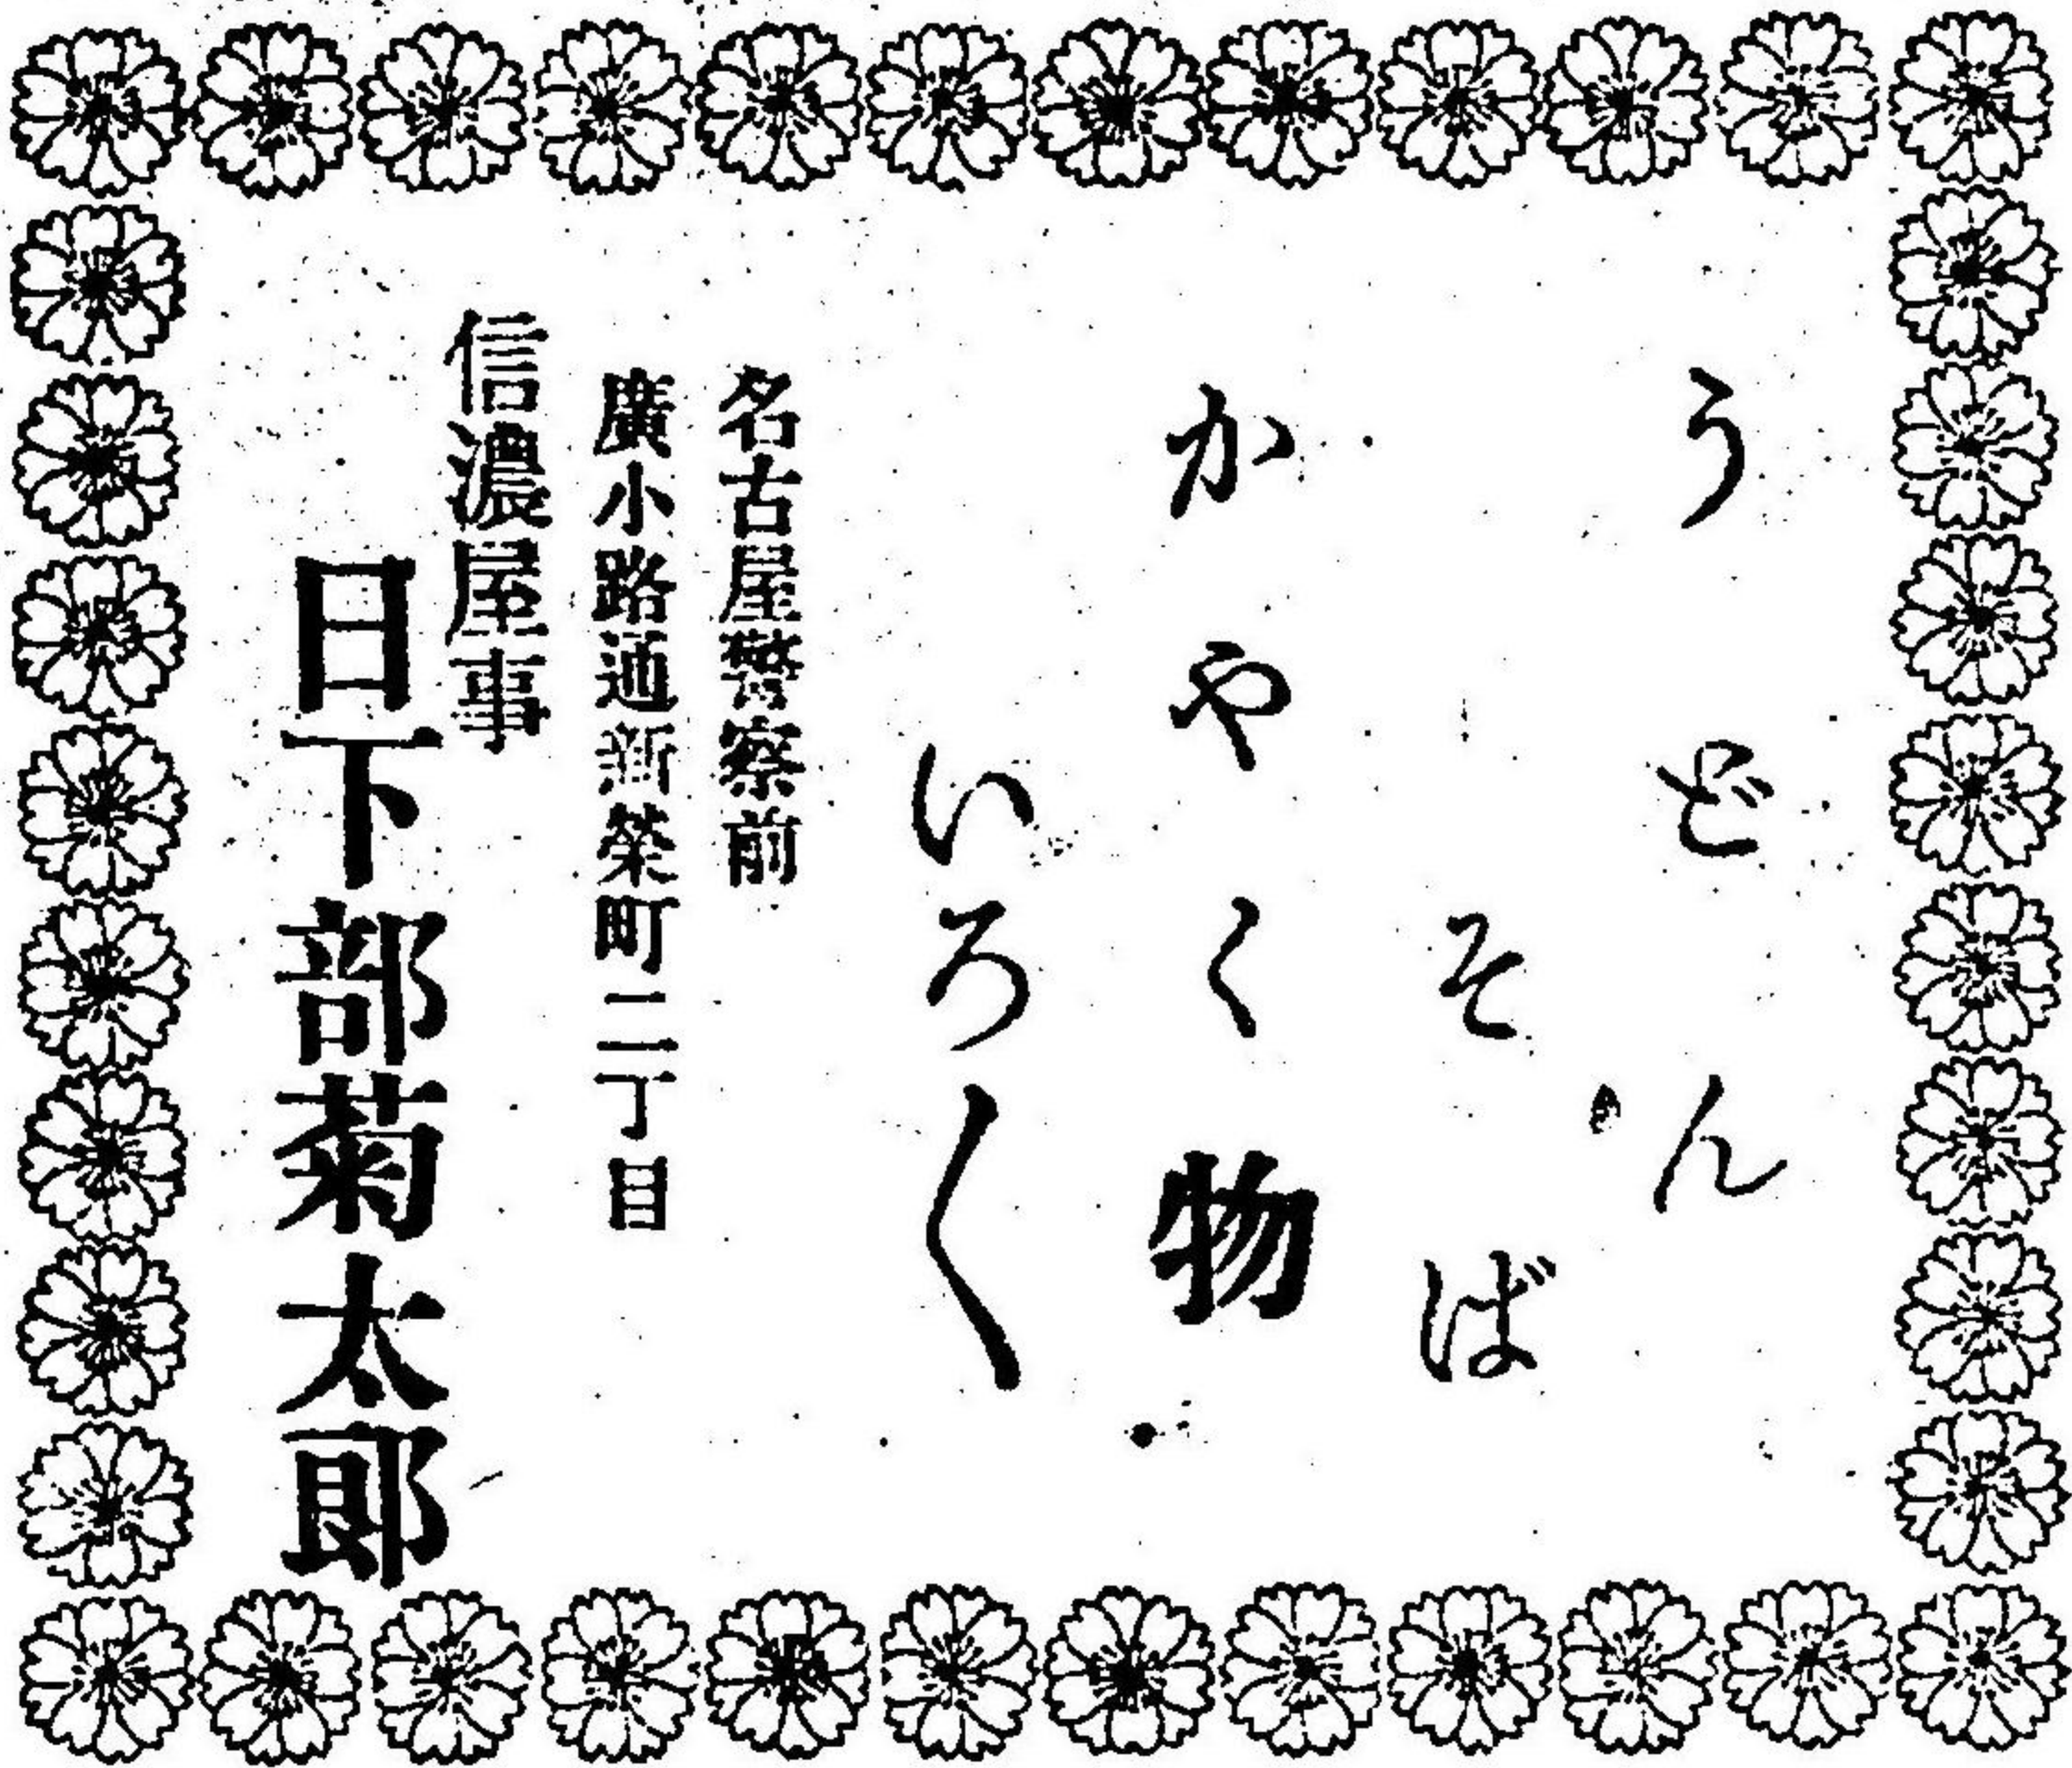 うどん
そば
かやく物
いろ〱
名古屋警察前
廣小路通新榮町二丁目
信濃屋事
日下部菊太郎